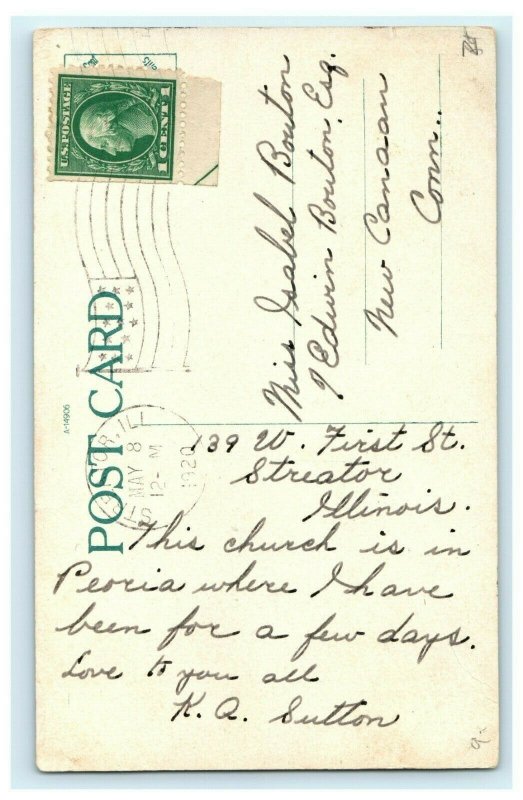 POST CARD
A-14906
U.S. POSTAGE
1 CENT 1
STREATOR, ILL
MAY 8
12-M
1920
Miss Isabel Bouton
℅ Edwin Bouton, Esq.
New Canaan
Conn..
139 W. First St.
Streator
Illinois.
This church is in
Peoria where I have
been for a few days.
Love to you all
K. A. Sutton